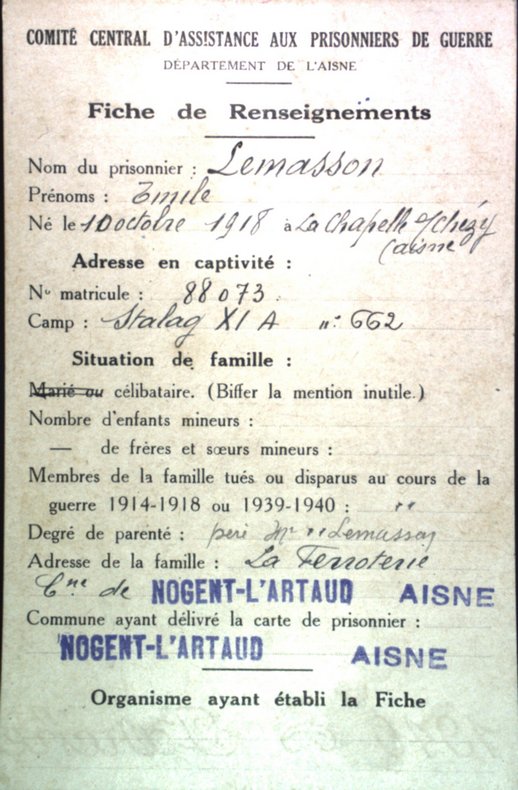 COMITÉ CENTRAL D'ASSISTANCE AUX PRISONNIERS DE GUERRE
DÉPARTEMENT DE L'AISNE
Fiche de Renseignements
Nom du prisonnier : Lemasson
Prénoms : Emile
Né le 10 octobre 1918 à La Chapelle s/Chézy
(aisne
Adresse en captivité :
No matricule : 88073
Camp : Stalag XI A n° 662
Situation de famille :
Marié ou célibataire. (Biffer la mention inutile.)
Nombre d'enfants mineurs :
— de frères et sœurs mineurs :
Membres de la famille tués ou disparus au cours de la
guerre 1914-1918 ou 1939-1940 : "
Degré de parenté : père Mr " Lemasson
Adresse de la famille : La Ferroterie
Cne de NOGENT-L'ARTAUD AISNE
Commune ayant délivré la carte de prisonnier :
NOGENT-L'ARTAUD AISNE
Organisme ayant établi la Fiche